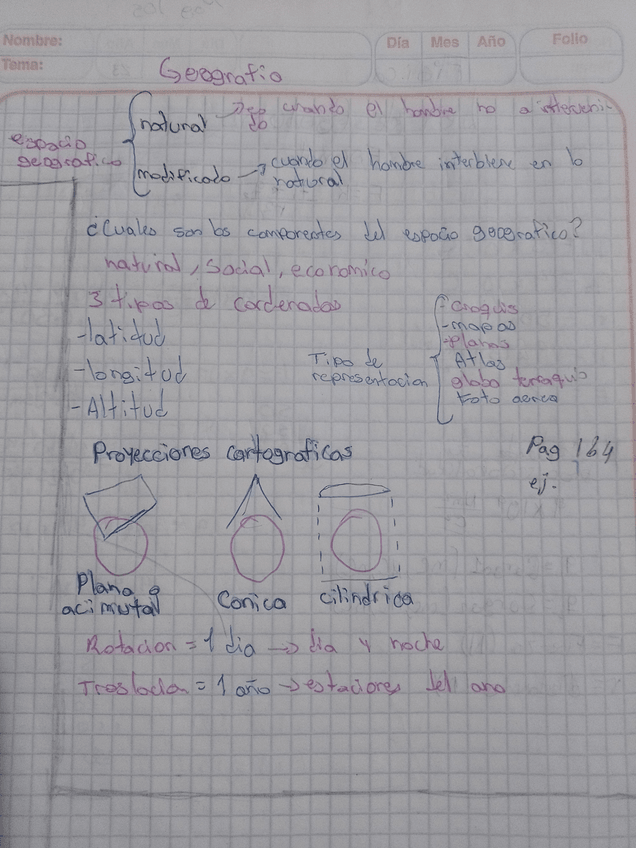 Nombre:
Día Mes Año
Folio
Tema:
Geografia
espacio
geografico
natural → es cuando el hombre no a interveni-
do
modificado → cuando el hombre interbiene en lo
natural
¿Cuales son los componentes del espacio geografico?
natural, social, economico
3 tipos de cordenadas
-latitud
-longitud
-Altitud
Tipo de
representacion
-Croquis
-mapas
-planos
Atlas
globo terraqueo
Foto aerea
Proyecciones cartograficas
Pag 164
ej.
Plana o
acimutal
Conica
cilindrica
Rotacion = 1 dia → dia y noche
Traslacion = 1 año → estaciones del ano